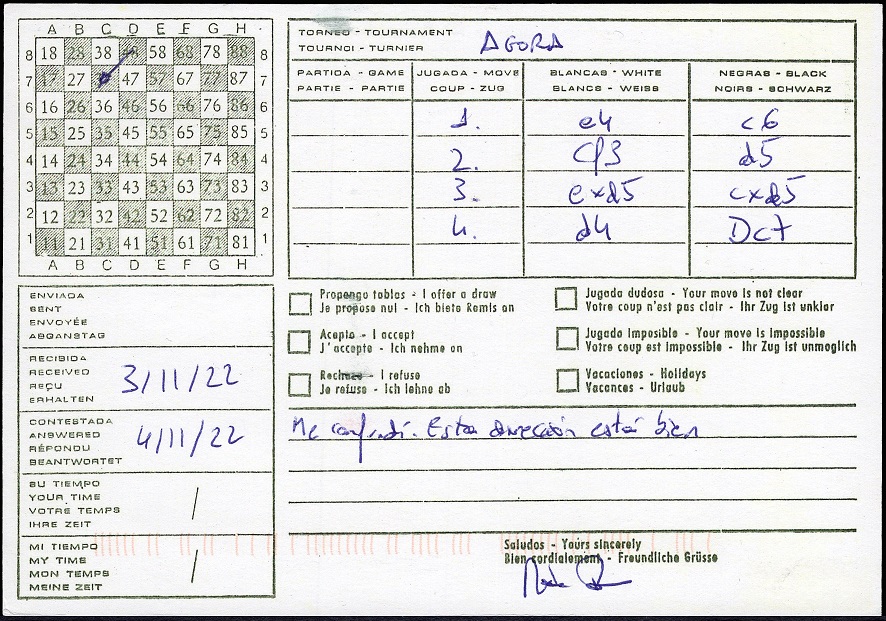 A B C D E F G H
8 18 28 38 48 58 68 78 88 8
7 17 27 47 57 67 77 87 7
6 16 26 36 46 56 66 76 86 6
5 15 25 35 45 55 65 75 85 5
4 14 24 34 44 54 64 74 84 4
3 13 23 33 43 53 63 73 83 3
2 12 22 32 42 52 62 72 82 2
1 11 21 31 41 51 61 71 81 1
A B C D E F G H
TORNEO - TOURNAMENT
TOURNOI - TURNIER
AGORA
PARTIDA - GAME JUGADA - MOVE BLANCAS - WHITE NEGRAS - BLACK
PARTIE - PARTIE COUP - ZUG BLANCS - WEISS NOIRS - SCHWARZ
1. e4 c6
2. Cf3 d5
3. exd5 cxd5
4. d4 Dc7
ENVIADA
SENT
ENVOYÉE
ABGANSTAG
RECIBIDA
RECEIVED
REÇU
ERHALTEN
3/11/22
CONTESTADA
ANSWERED
RÉPONDU
BEANTWORTET
4/11/22
SU TIEMPO
YOUR TIME
VOTRE TEMPS
IHRE ZEIT
/
MI TIEMPO
MY TIME
MON TEMPS
MEINE ZEIT
/
Propongo tablas - I offer a draw
Je propose nul - Ich biete Remis an
Acepto - I accept
J'accepte - Ich nehme an
Rechazo - I refuse
Je refuse - Ich lehne ab
Jugada dudosa - Your move is not clear
Votre coup n'est pas clair - Ihr Zug ist unklar
Jugada Imposible - Your move is impossible
Votre coup est impossible - Ihr Zug ist unmoglich
Vacaciones - Holidays
Vacances - Urlaub
Me confundí. Esta dirección está bien
Saludos - Yours sincerely
Bien cordialement - Freundliche Grüsse